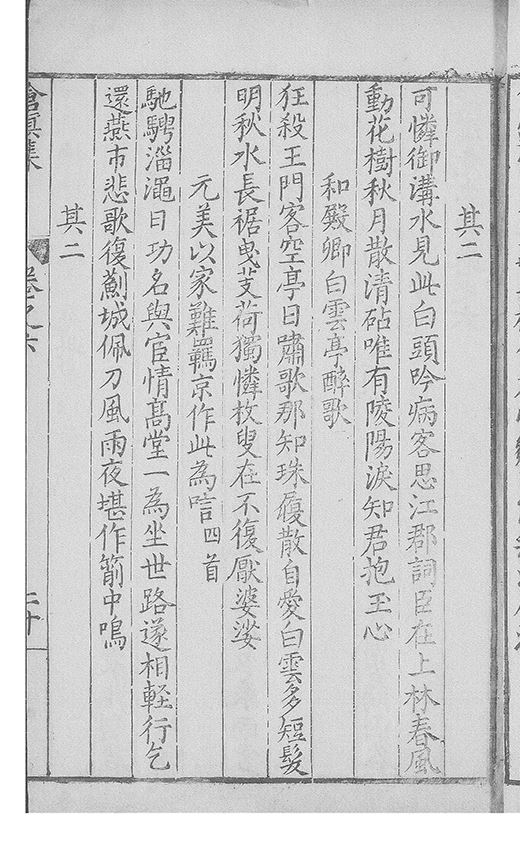 其二
可憐御溝水見此白頭吟病客思江郡詞臣在上林春風
動花樹秋月散清砧唯有陵陽淚知君抱玉心
和殿卿白雲亭醉歌
狂殺王門客空亭日嘯歌那知珠履散自愛白雲多短髮
明秋水長裾曳芰荷獨憐枚叟在不復厭婆娑
元美以家難羈京作此為唁四首
馳騁淄澠日功名與宦情高堂一為坐世路遂相輕行乞
還燕市悲歌復薊城佩刀風雨夜堪作箭中鳴
其二
滄溟集 卷之六 二十